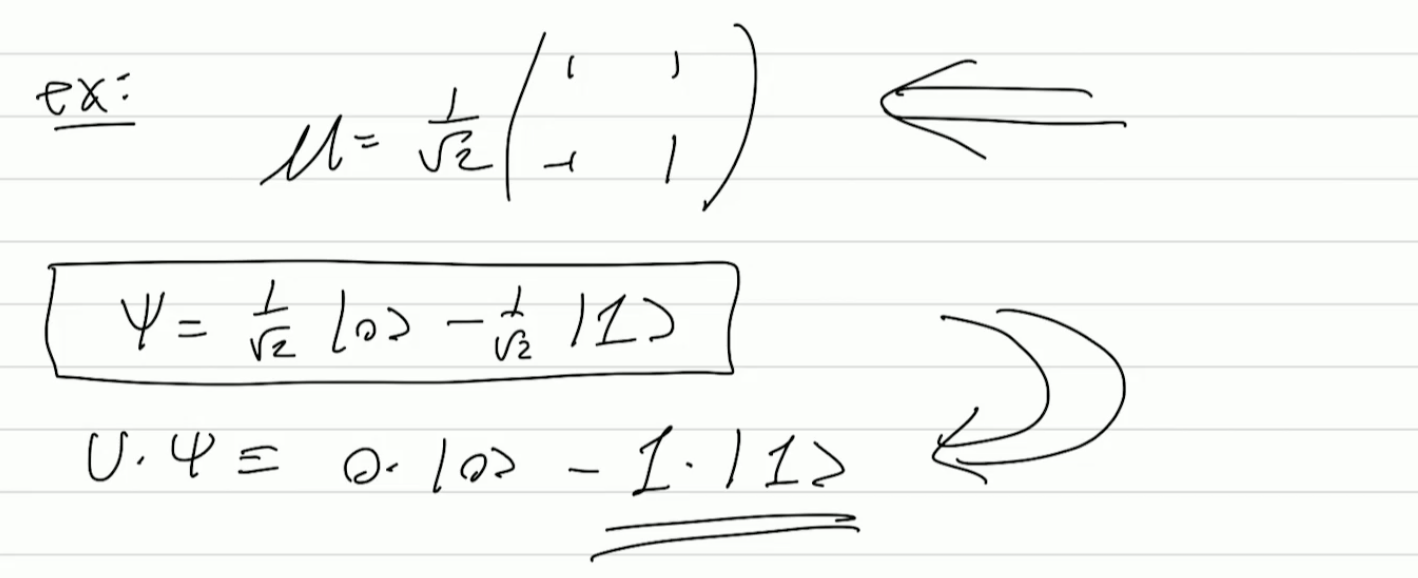 ex: U = 1/√2 ( 1 1 ; -1 1 )
Ψ = 1/√2 |0> - 1/√2 |1>
U·Ψ ≡ 0·|0> - 1·|1>